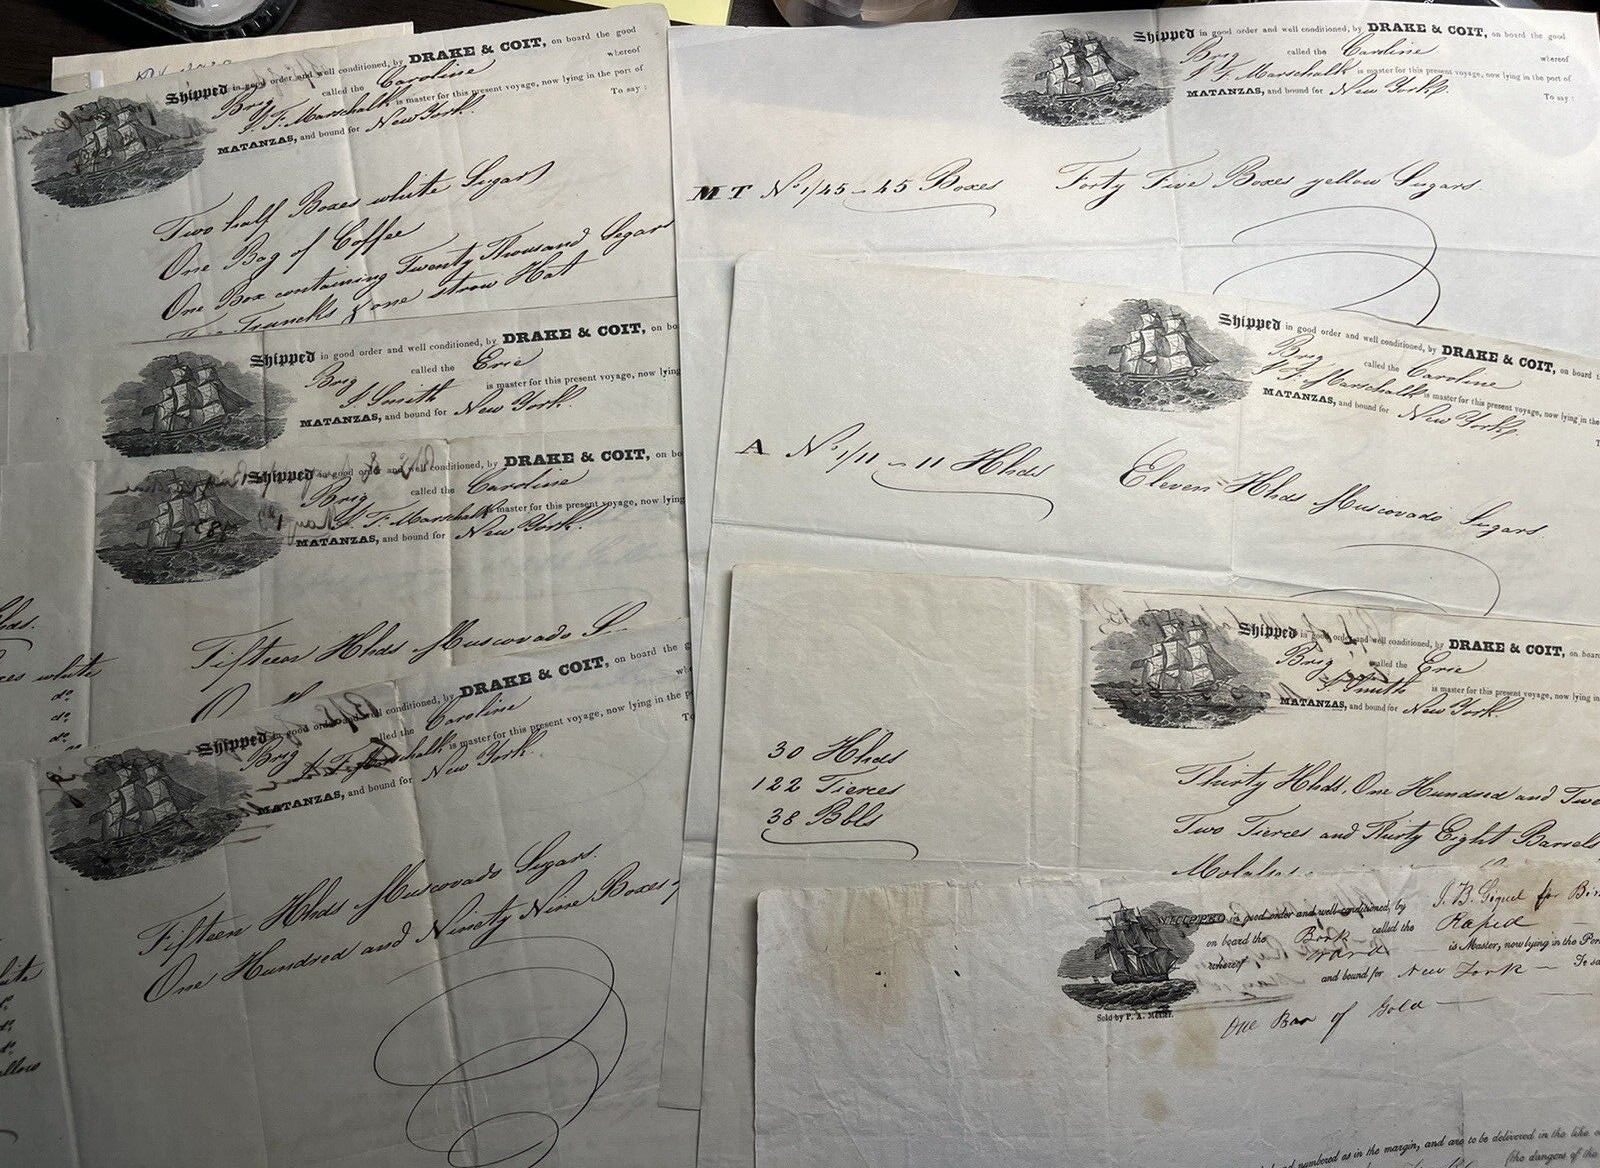 Shipped in good order and well conditioned, by DRAKE & COIT, on board the good
Brig called the Caroline whereof
F. Marschalk is master for this present voyage, now lying in the port of
MATANZAS, and bound for New York. To say:
Two half Boxes white Sugars
One Bag of Coffee
One Box containing Twenty Thousand Segars
Trunks & one straw Hat
Shipped in good order and well conditioned, by DRAKE & COIT, on bo
Brig called the Erie
Smith is master for this present voyage, now lying
MATANZAS, and bound for New York.
Shipped in good order and well conditioned, by DRAKE & COIT, on bo
Brig called the Caroline
F. Marschalk is master for this present voyage, now lying
MATANZAS, and bound for New York.
Fifteen Hhds Muscovado S
hds.
xes white
do
do
do
Shipped in good order and well conditioned, by DRAKE & COIT, on board the g
Brig called the Caroline wh
F. Marschalk is master for this present voyage, now lying in the p
MATANZAS, and bound for New York. To
Fifteen Hhds Muscovado Sugars.
One Hundred and Ninety Nine Boxes
Shipped in good order and well conditioned, by DRAKE & COIT, on board the good
Brig called the Caroline whereof
F. Marschalk is master for this present voyage, now lying in the port of
MATANZAS, and bound for New York. To say:
M T No 1/45 - 45 Boxes Forty Five Boxes yellow Sugars
Shipped in good order and well conditioned, by DRAKE & COIT, on board t
Brig called the Caroline
F. Marschalk is master for this present voyage, now lying in the
MATANZAS, and bound for New York. T
A No 1/11 - 11 Hhds Eleven Hhds Muscovado Sugars
Shipped in good order and well conditioned, by DRAKE & COIT, on boar
Brig called the Erie
Smith is master for this present voyage, now lying in
MATANZAS, and bound for New York.
30 Hhds
122 Tierces
38 Bbls
Thirty Hhds, One Hundred and Twe
Two Tierces and Thirty Eight Barrels
Molasses
SHIPPED in good order and well-conditioned, by J. B. Giquel for Bir
on board the Bark called the Rapid
whereof Ward is Master, now lying in the Por
and bound for New York To sa
Sold by P. A. Mesier.
One Bar of Gold
numbered as in the margin, and are to be delivered in the like o
(the dangers of the